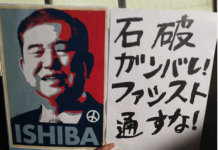 ISHIBA
石破
ガンバレ!
ファシスト
通すな!